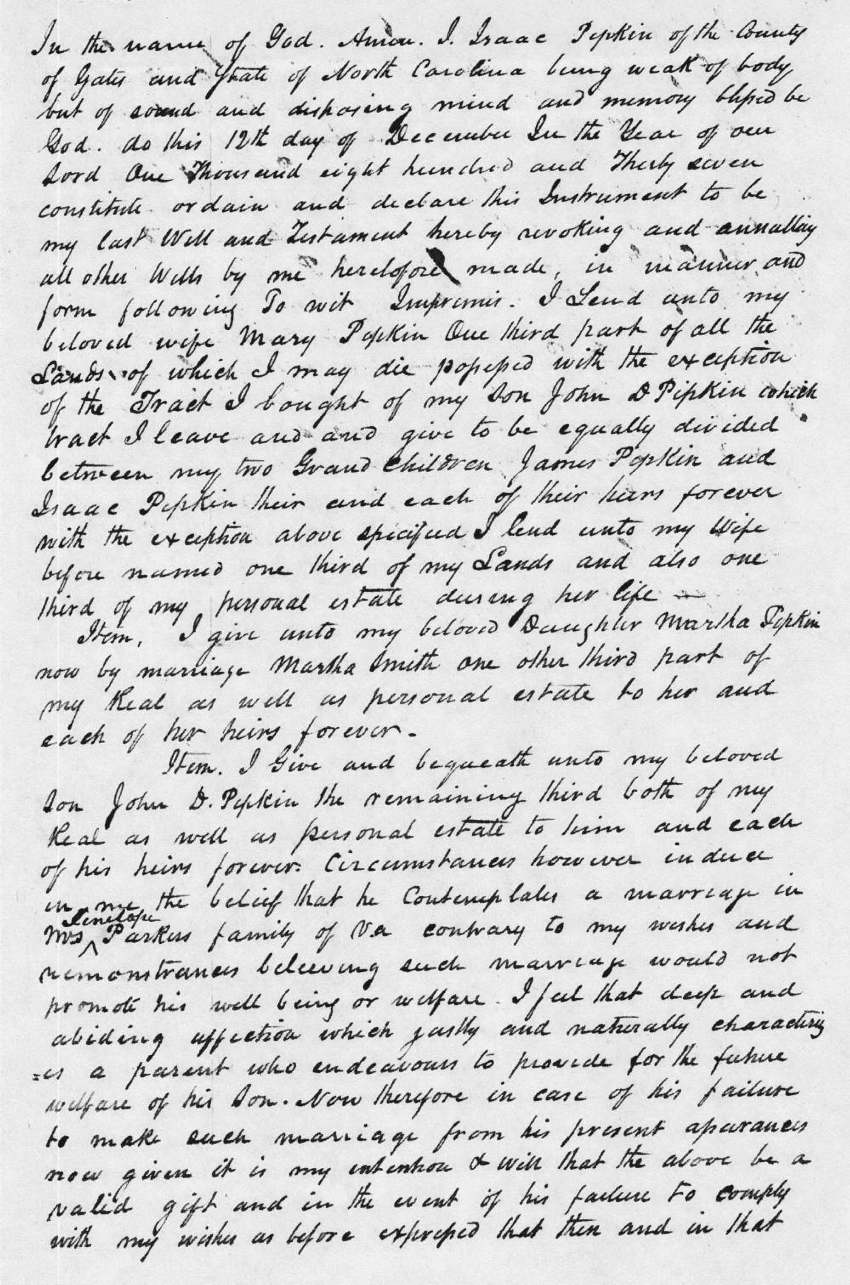 In the name of God. Amen. I. Isaac Pipkin of the County
of Gates and State of North Carolina being weak of body
but of sound and disposing mind and memory blessed be
God. do this 12th day of December In the Year of our
Lord One Thousand eight hundred and Thirty seven
constitute ordain and declare this Instrument to be
my last Will and Testament hereby revoking and annulling
all other Wills by me heretofore made, in manner and
form following To wit Imprimis. I Lend unto my
beloved wife Mary Pipkin One third part of all the
Lands of which I may die possessed with the exception
of the Tract I bought of my Son John D Pipkin which
tract I leave and and give to be equally divided
between my two Grand Children James Pipkin and
Isaac Pipkin their and each of their heirs forever
with the exception above specified I lend unto my Wife
before named one third of my Lands and also one
third of my personal estate during her life —
Item, I give unto my beloved Daughter Martha Pipkin
now by marriage Martha Smith one other third part of
my Real as well as personal estate to her and
each of her heirs forever -
Item. I Give and bequeath unto my beloved
Son John D. Pipkin the remaining third both of my
Real as well as personal estate to him and each
of his heirs forever. Circumstances however induce
in me the belief that he Contemplates a marriage in
Mrs Penelope Parkers family of Va contrary to my wishes and
remonstrances believing such marriage would not
promote his well being or welfare. I feel that deep and
abiding affection which justly and naturally characteriz
=es a parent who endeavours to provide for the future
welfare of his Son. Now therefore in case of his failure
to make such marriage from his present aparances
now given it is my intention & will that the above be a
valid gift and in the event of his failure to comply
with my wishes as before expressed that then and in that